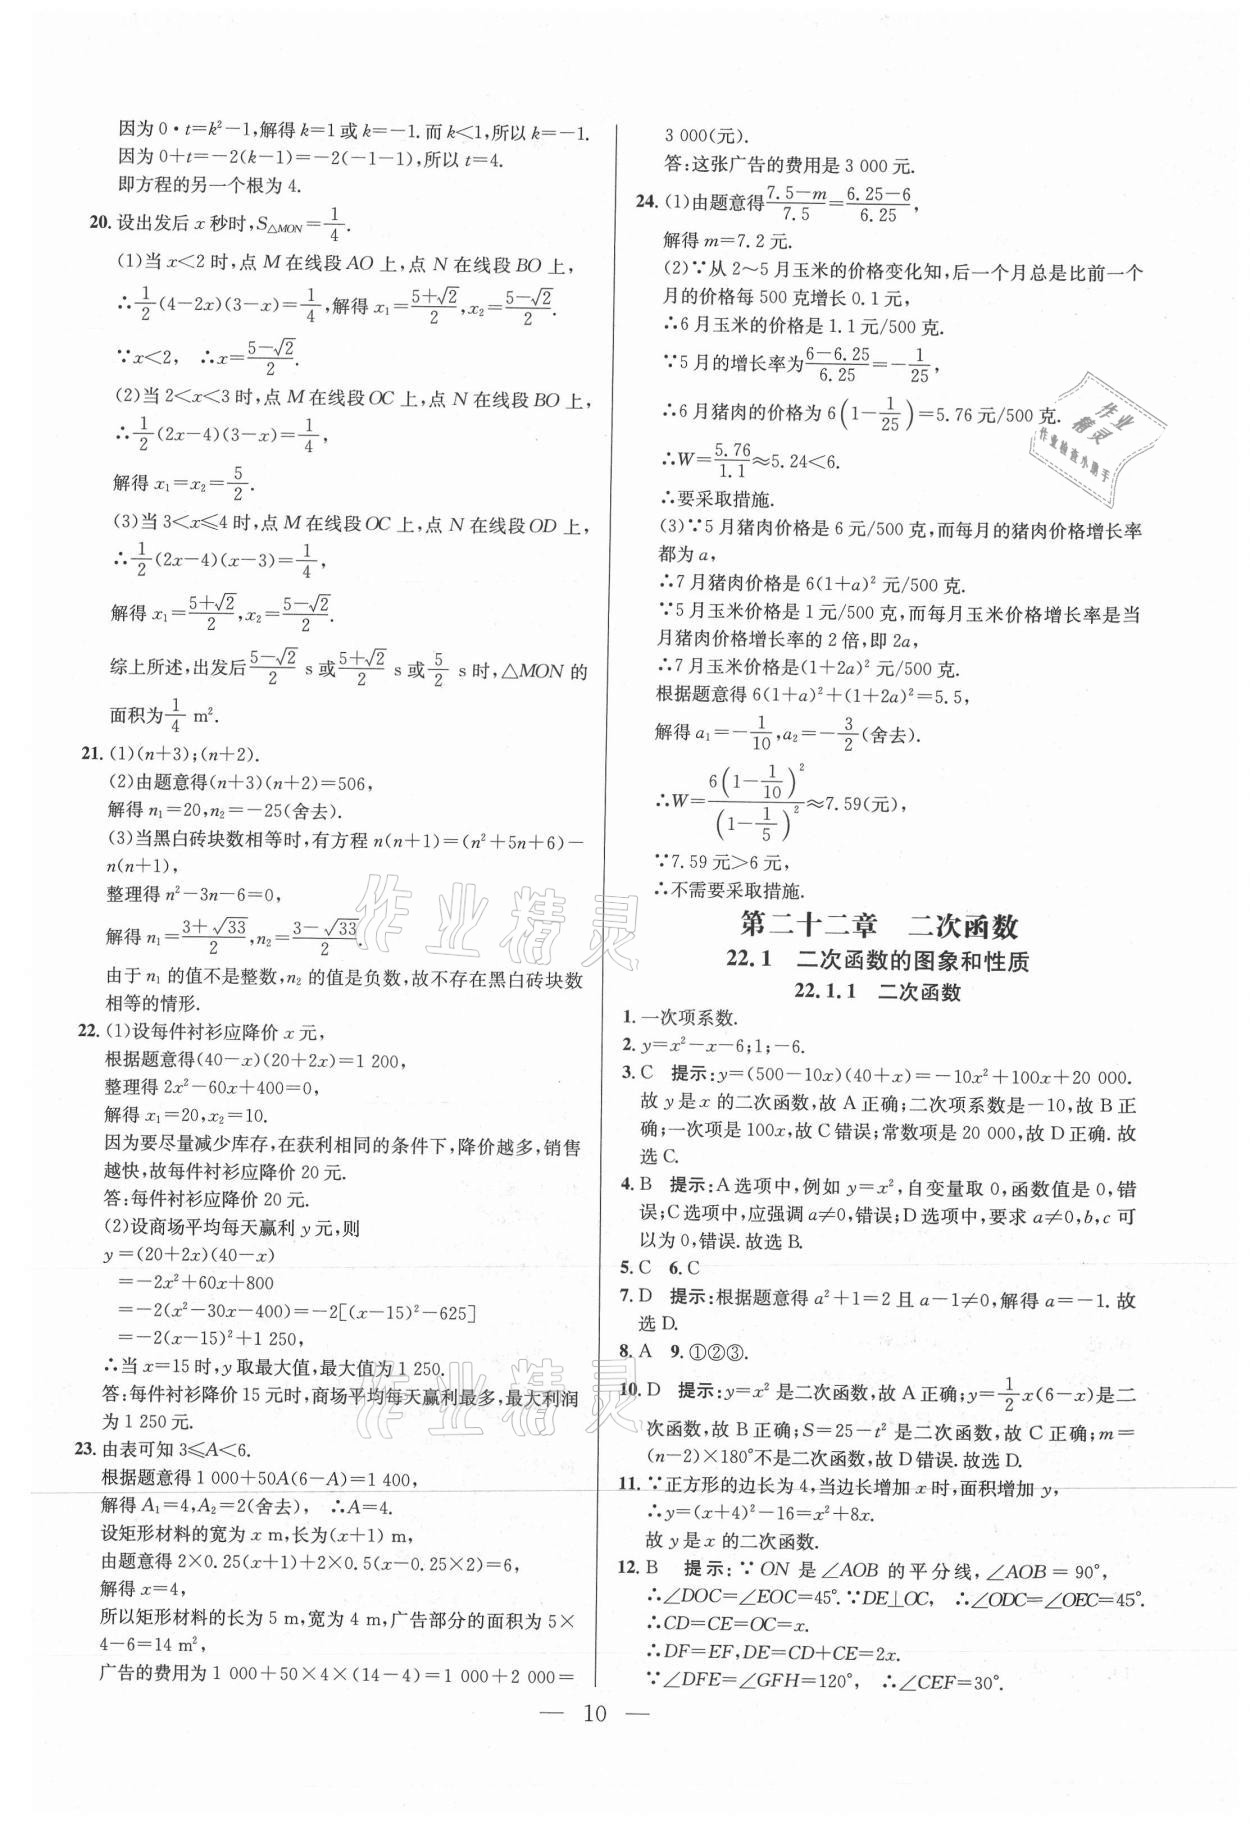 因为 0·t=k²-1,解得 k=1 或 k=-1.而 k<1,所以 k=-1.
因为 0+t=-2(k-1)=-2(-1-1),所以 t=4.
即方程的另一个根为 4.
20. 设出发后 x 秒时,S△MON=1/4.
(1)当 x<2 时,点 M 在线段 AO 上,点 N 在线段 BO 上,
∴1/2(4-2x)(3-x)=1/4,解得 x₁=(5+√2)/2,x₂=(5-√2)/2.
∵x<2, ∴x=(5-√2)/2.
(2)当 2<x<3 时,点 M 在线段 OC 上,点 N 在线段 BO 上,
∴1/2(2x-4)(3-x)=1/4,
解得 x₁=x₂=5/2.
(3)当 3<x≤4 时,点 M 在线段 OC 上,点 N 在线段 OD 上,
∴1/2(2x-4)(x-3)=1/4,
解得 x₁=(5+√2)/2,x₂=(5-√2)/2.
综上所述,出发后(5-√2)/2 s 或(5+√2)/2 s 或5/2 s 时,△MON 的
面积为1/4 m².
21. (1)(n+3);(n+2).
(2)由题意得(n+3)(n+2)=506,
解得 n₁=20,n₂=-25(舍去).
(3)当黑白砖块数相等时,有方程 n(n+1)=(n²+5n+6)-
n(n+1),
整理得 n²-3n-6=0,
解得 n₁=(3+√33)/2,n₂=(3-√33)/2.
由于 n₁ 的值不是整数,n₂ 的值是负数,故不存在黑白砖块数
相等的情形.
22. (1)设每件衬衫应降价 x 元,
根据题意得(40-x)(20+2x)=1 200,
整理得 2x²-60x+400=0,
解得 x₁=20,x₂=10.
因为要尽量减少库存,在获利相同的条件下,降价越多,销售
越快,故每件衬衫应降价 20 元.
答:每件衬衫应降价 20 元.
(2)设商场平均每天赢利 y 元,则
y=(20+2x)(40-x)
=-2x²+60x+800
=-2(x²-30x-400)=-2[(x-15)²-625]
=-2(x-15)²+1 250,
∴当 x=15 时,y 取最大值,最大值为 1 250.
答:每件衬衫降价 15 元时,商场平均每天赢利最多,最大利润
为 1 250 元.
23. 由表可知 3≤A<6.
根据题意得 1 000+50A(6-A)=1 400,
解得 A₁=4,A₂=2(舍去), ∴A=4.
设矩形材料的宽为 x m,长为(x+1) m,
由题意得 2×0.25(x+1)+2×0.5(x-0.25×2)=6,
解得 x=4,
所以矩形材料的长为 5 m,宽为 4 m,广告部分的面积为 5×
4-6=14 m²,
广告的费用为 1 000+50×4×(14-4)=1 000+2 000=
3 000(元).
答:这张广告的费用是 3 000 元.
24. (1)由题意得(7.5-m)/7.5=(6.25-6)/6.25,
解得 m=7.2 元.
(2)∵从 2~5 月玉米的价格变化知,后一个月总是比前一个
月的价格每 500 克增长 0.1 元,
∴6 月玉米的价格是 1.1 元/500 克.
∵5 月的增长率为(6-6.25)/6.25=-1/25,
∴6 月猪肉的价格为 6(1-1/25)=5.76 元/500 克.
∴W=5.76/1.1≈5.24<6.
∴要采取措施.
(3)∵5 月猪肉价格是 6 元/500 克,而每月的猪肉价格增长率
都为 a,
∴7 月猪肉价格是 6(1+a)² 元/500 克.
∵5 月玉米价格是 1 元/500 克,而每月玉米价格增长率是当
月猪肉价格增长率的 2 倍,即 2a,
∴7 月玉米价格是(1+2a)² 元/500 克.
根据题意得 6(1+a)²+(1+2a)²=5.5,
解得 a₁=-1/10,a₂=-3/2(舍去).
∴W=6(1-1/10)²/(1-1/5)²≈7.59(元),
∵7.59 元>6 元,
∴不需要采取措施.
第二十二章 二次函数
22.1 二次函数的图象和性质
22.1.1 二次函数
1. 一次项系数.
2. y=x²-x-6;1;-6.
3. C 提示:y=(500-10x)(40+x)=-10x²+100x+20 000.
故 y 是 x 的二次函数,故 A 正确;二次项系数是-10,故 B 正
确;一次项是 100x,故 C 错误;常数项是 20 000,故 D 正确.故
选 C.
4. B 提示:A 选项中,例如 y=x²,自变量取 0,函数值是 0,错
误;C 选项中,应强调 a≠0,错误;D 选项中,要求 a≠0,b,c 可
以为 0,错误.故选 B.
5. C 6. C
7. D 提示:根据题意得 a²+1=2 且 a-1≠0,解得 a=-1.故
选 D.
8. A 9. ①②③.
10. D 提示:y=x² 是二次函数,故 A 正确;y=1/2x(6-x)是二
次函数,故 B 正确;S=25-t² 是二次函数,故 C 正确;m=
(n-2)×180°不是二次函数,故 D 错误.故选 D.
11. ∵正方形的边长为 4,当边长增加 x 时,面积增加 y,
∴y=(x+4)²-16=x²+8x.
故 y 是 x 的二次函数.
12. B 提示:∵ON 是∠AOB 的平分线,∠AOB=90°,
∴∠DOC=∠EOC=45°.∵DE⊥OC, ∴∠ODC=∠OEC=45°.
∴CD=CE=OC=x.
∴DF=EF,DE=CD+CE=2x.
∵∠DFE=∠GFH=120°, ∴∠CEF=30°.
— 10 —
作业
精灵
作业检查小助手
作业精灵
作业精灵